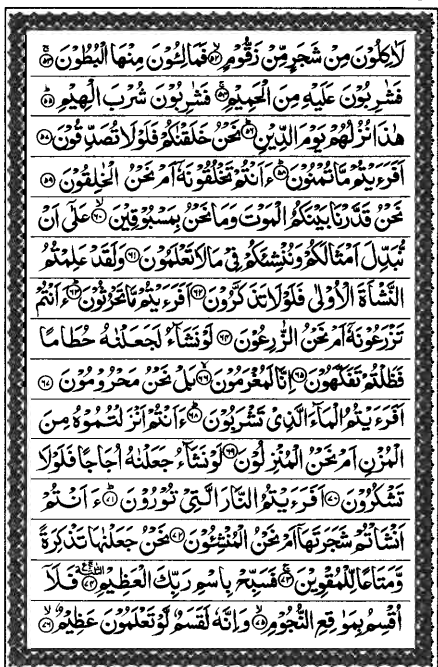 لَاٰكِلُوْنَ مِنْ شَجَرٍ مِّنْ زَقُّوْمٍ ۝۵۲ فَمَالِـُٔوْنَ مِنْهَا الْبُطُوْنَ ۝۵۳
فَشٰرِبُوْنَ عَلَيْهِ مِنَ الْحَمِيْمِ ۝۵۴ فَشٰرِبُوْنَ شُرْبَ الْهِيْمِ ۝۵۵
هٰذَا نُزُلُهُمْ يَوْمَ الدِّيْنِ ۝۵۶ نَحْنُ خَلَقْنٰكُمْ فَلَوْلَا تُصَدِّقُوْنَ ۝۵۷
اَفَرَءَيْتُمْ مَّا تُمْنُوْنَ ۝۵۸ ءَاَنْتُمْ تَخْلُقُوْنَهٗٓ اَمْ نَحْنُ الْخٰلِقُوْنَ ۝۵۹
نَحْنُ قَدَّرْنَا بَيْنَكُمُ الْمَوْتَ وَمَا نَحْنُ بِمَسْبُوْقِيْنَ ۝۶۰ عَلٰٓى اَنْ
نُّبَدِّلَ اَمْثَالَكُمْ وَنُنْشِئَكُمْ فِيْ مَا لَا تَعْلَمُوْنَ ۝۶۱ وَلَقَدْ عَلِمْتُمُ
النَّشْاَةَ الْاُوْلٰى فَلَوْلَا تَذَكَّرُوْنَ ۝۶۲ اَفَرَءَيْتُمْ مَّا تَحْرُثُوْنَ ۝۶۳ ءَاَنْتُمْ
تَزْرَعُوْنَهٗٓ اَمْ نَحْنُ الزّٰرِعُوْنَ ۝۶۴ لَوْ نَشَآءُ لَجَعَلْنٰهُ حُطَامًا
فَظَلْتُمْ تَفَكَّهُوْنَ ۝۶۵ اِنَّا لَمُغْرَمُوْنَ ۝۶۶ بَلْ نَحْنُ مَحْرُوْمُوْنَ ۝۶۷
اَفَرَءَيْتُمُ الْمَآءَ الَّذِيْ تَشْرَبُوْنَ ۝۶۸ ءَاَنْتُمْ اَنْزَلْتُمُوْهُ مِنَ
الْمُزْنِ اَمْ نَحْنُ الْمُنْزِلُوْنَ ۝۶۹ لَوْ نَشَآءُ جَعَلْنٰهُ اُجَاجًا فَلَوْلَا
تَشْكُرُوْنَ ۝۷۰ اَفَرَءَيْتُمُ النَّارَ الَّتِيْ تُوْرُوْنَ ۝۷۱ ءَاَنْتُمْ
اَنْشَاْتُمْ شَجَرَتَهَآ اَمْ نَحْنُ الْمُنْشِـُٔوْنَ ۝۷۲ نَحْنُ جَعَلْنٰهَا تَذْكِرَةً
وَّمَتَاعًا لِّلْمُقْوِيْنَ ۝۷۳ فَسَبِّحْ بِاسْمِ رَبِّكَ الْعَظِيْمِ ۝۷۴ فَلَآ
اُقْسِمُ بِمَوٰقِعِ النُّجُوْمِ ۝۷۵ وَاِنَّهٗ لَقَسَمٌ لَّوْ تَعْلَمُوْنَ عَظِيْمٌ ۝۷۶